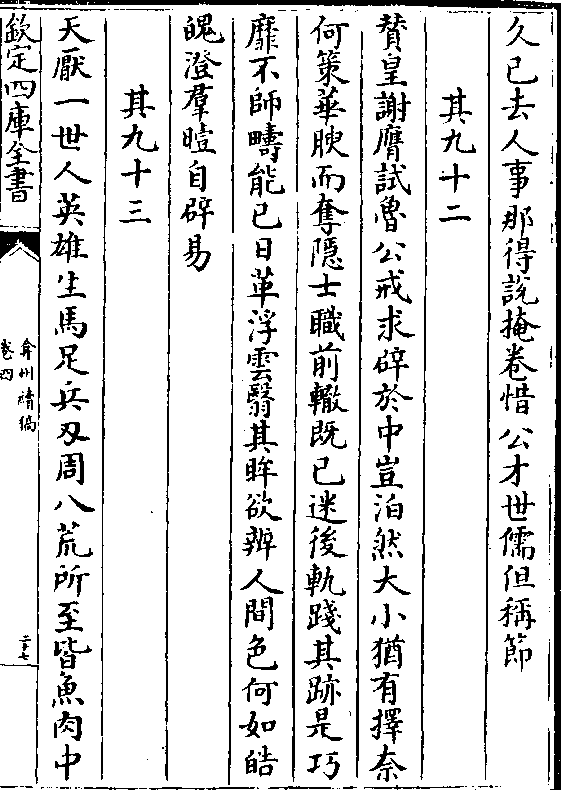 久已去人事那得説掩卷惜公才世儒但稱節
其九十二
賛皇謝膺試魯公戒求辟於中豈泊然大小猶有擇奈
何策華腴而奪隠士職前轍既已迷後軌踐其跡是巧
靡不師疇能已日革浮雲翳其眸欲辨人間色何如皓
魄澄羣曀自辟易
其九十三
天厭一世人英雄生馬足兵刃周八荒所至皆魚肉中
欽定四庫全書
弇州續稿
卷四
二十七